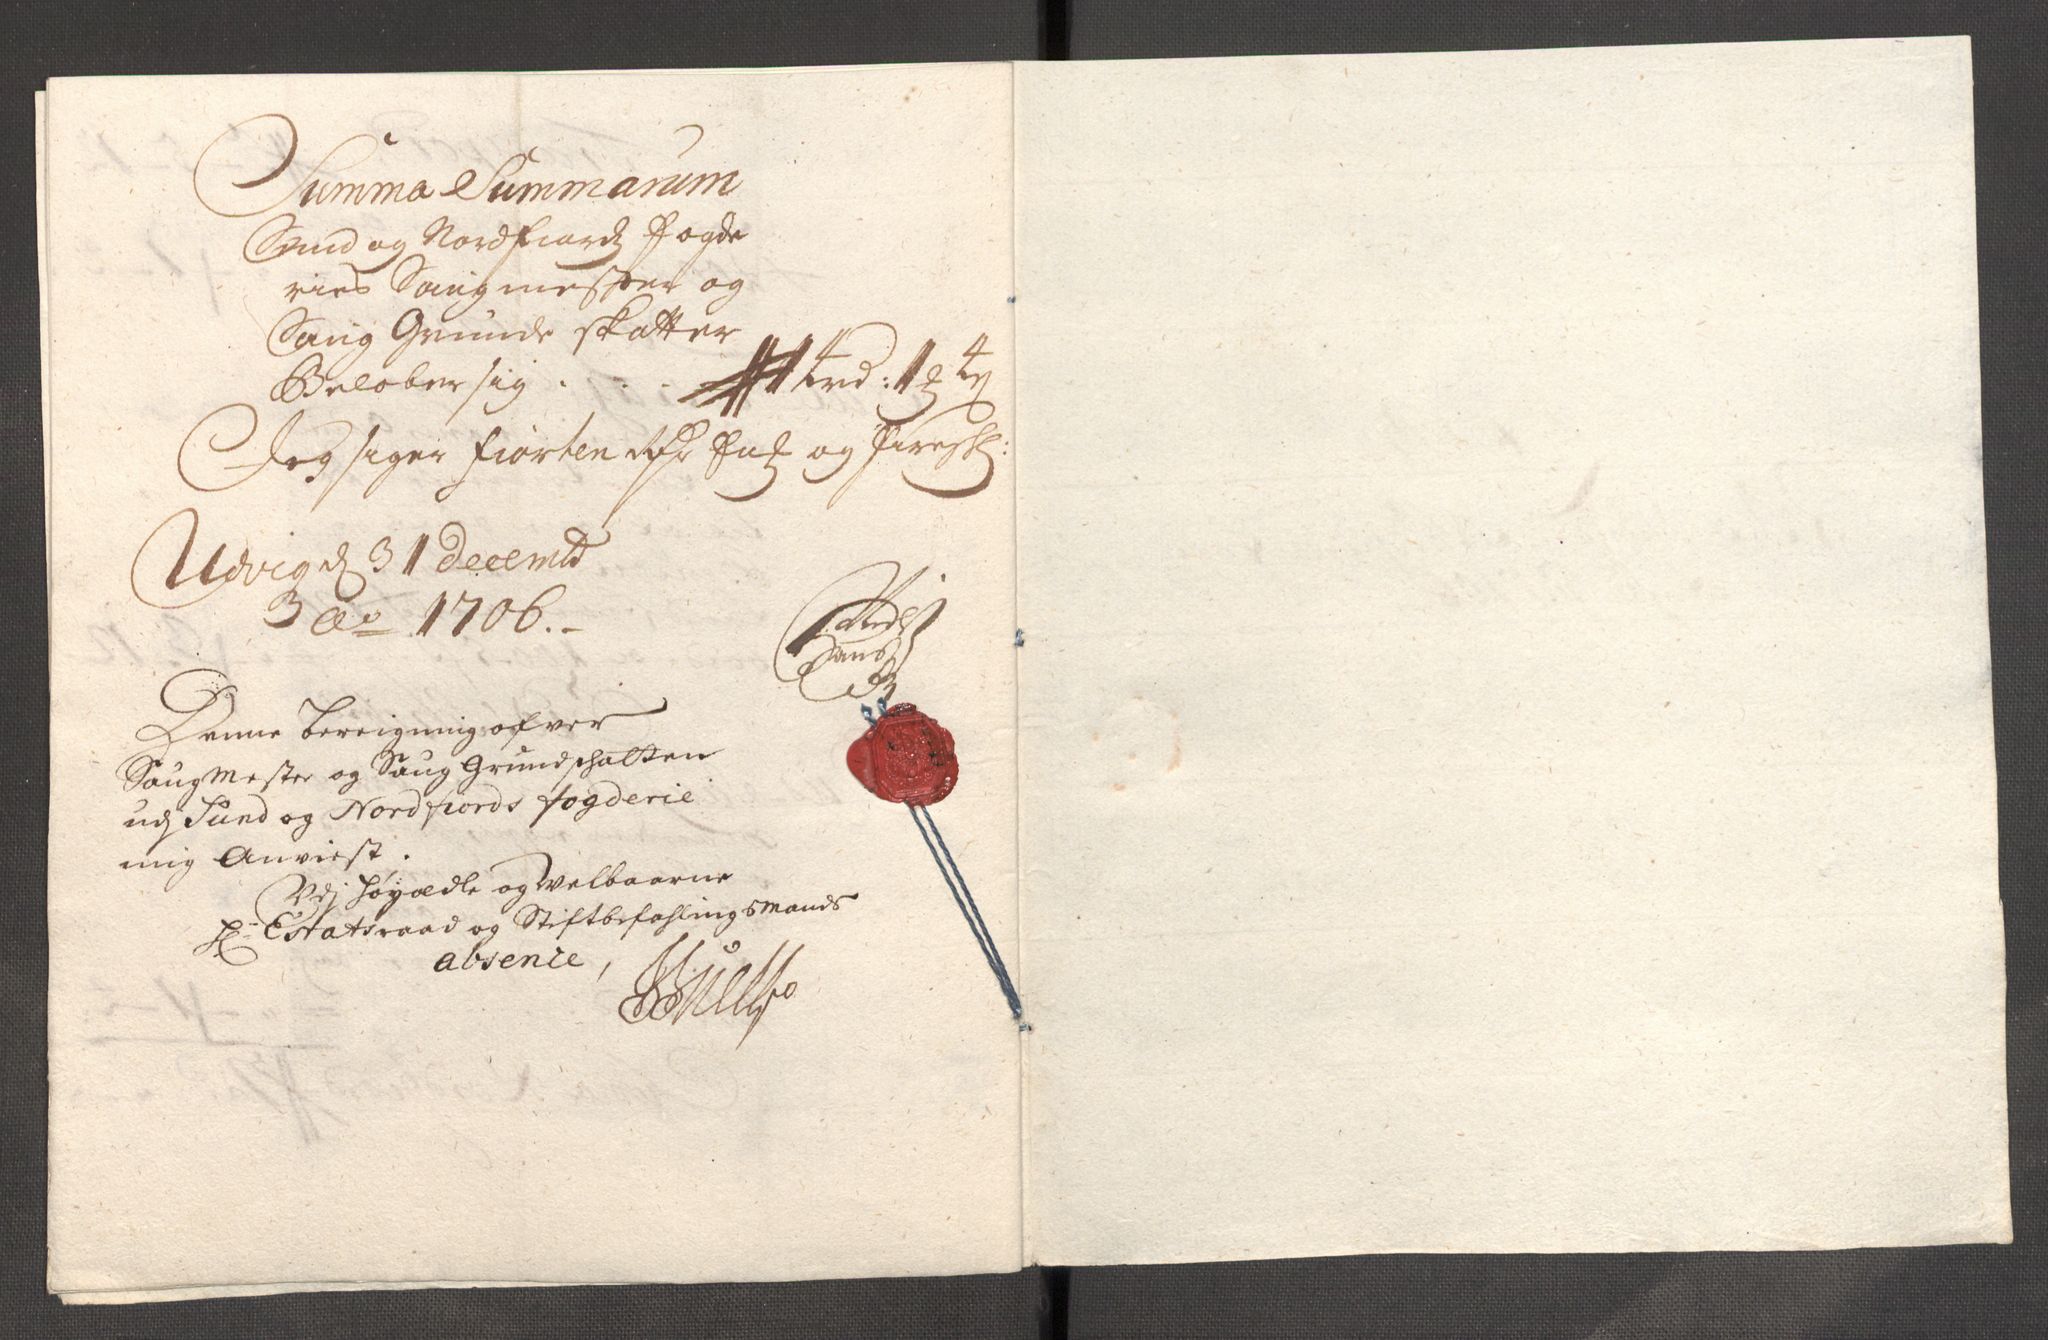 Summa Summarum
Sund og Nordfiordz fogde
ries Saugmester og
Saug Grunde skatter
Beløber sig . . . 14 rd: 1 4
Jeg siger fiorten og fire sk:
Udvig d 31 Decemb
Ao 1706.
Hans
Denne bereigning ofver
Saugmester og Saug Grundschatten
udj Sund og Nordfiords fogderie
mig Anviest.
Vdj høyædle og Welbaarne
Hr Etatsraad og Stiftbefahlingsmands
absence,